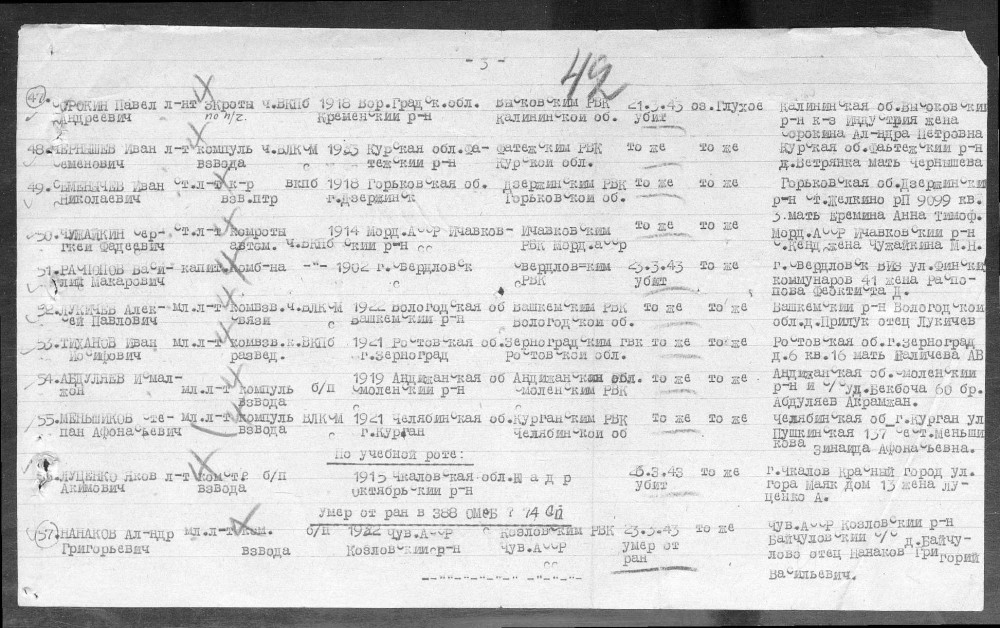 - 3 -
42
47. СОРОКИН Павел л-нт з кроты ч.ВКПб 1918 Вор.Град ск.обл. Высковским РВК 21.3.43 ов.Глухое Калининская об.Высоковский
Андреевич по п/ч. Кременский р-н Калининской об. убит р-н к-з Индустрия жена
Сорокина Ал-ндра Петровна
48.ЧЕРНЫШЕВ Иван л-т компуль ч.ВЛКСМ 1923 Курская обл.Фа- Фатежским РВК то же то же Курская об.Фатежский р-н
Семенович взвода тежский р-н Курской обл. д.Ветрянка мать Чернышева
49. СЕМЕНЫЧЕВ Иван ст.л-т к-р вкпб 1918 Горьковская об. Дзержинским РВК то же то же Горьковская об.Дзержинский
Николаевич взв.птр г.Дзержинск Горьковской об. р-н ст.Желкино рП 9099 кв.
3.мать Еремина Анна Тимоф.
50. ЧУЖАЙКИН Сер- ст.л-т Комроты 1914 Морд.АССР Ичавков- Ичавковским то же то же Морд.АССР Ичавковский р-н
гкей Фадеевич автом. ч.ВКПб ский р-н РВК Морд.асср с.Кенд.жена Чужайкина М.Н.
51. РАСПОПОВ Васи- капит.Комб-на -"- 1902 г.Свердловск Свердлов=ким 23.3.43 то же г.Свердловск ВИЗ ул.Финских
лий Макарович РВК убит коммунаров 41 жена Распо-
пова Феоктиста Д.
52.ЛУКИЧЕВ Алек- мл.л-т Комвзв.ч.ВЛКСМ 1922 Вологодская об Вашкемским РВК то же то же Вашкемский р-н Вологодской
сей Павлович связи Вашкемский р-н Вологодской об. обл.д.Прилук отец Лукичев
53.ТИХАНОВ Иван мл.л-т комвзв.к.ВКПб 1921 Ростовская об.Зерноградским гвк то же то же Ростовская об.г.Зерноград
Иосифович развед. г.Зерноград Ростовской обл. д.6 кв.16 мать Галичева АВ
54.АБДУЛЯЕВ Исмал- 1919 Андижанская об Андижанской обл. то же то же Андижанская об.Смоленский
жон мл.л-т компуль б/п Смоленский р-н Смоленским РВК р-н и с/с ул.Бекбоча 60 бр.
взвода Абдуляев Акрамжан.
55.МЕНЬШИКОВ Сте- мл.л-т компуль ВЛКСМ 1921 Челябинская об.Курганским РВК то же то же Челябинская об_г.Курган ул
пан Афонасьевич взвода г.Курган Челябинской об Пушкинская 137 сест.Меньши
кова Зинаида Афонасьевна.
По учебной роте:
ЛУЦЕНКО Яков л-т б/п 1915 Чкаловская обл. 23.3.43 то же г.Чкалов Красный город ул.
Акимович взвода октябрьский р-н убит гора Маяк дом 13 жена Лу-
ценко А.
Умер от ран в 388 ОМСБ 74 СД
57.НАНАКОВ Ал-ндр мл.л-т ком. б/п 1922 Чув.АССР Козловским РВК 23.3.43 то же Чув.АССР Козловский р-н
Григорьевич взвода Козловский р-н Чув.АССР умер от ран Байчуловский с/с д.Байчу-
лово отец Нанаков Григорий
Васильевич.